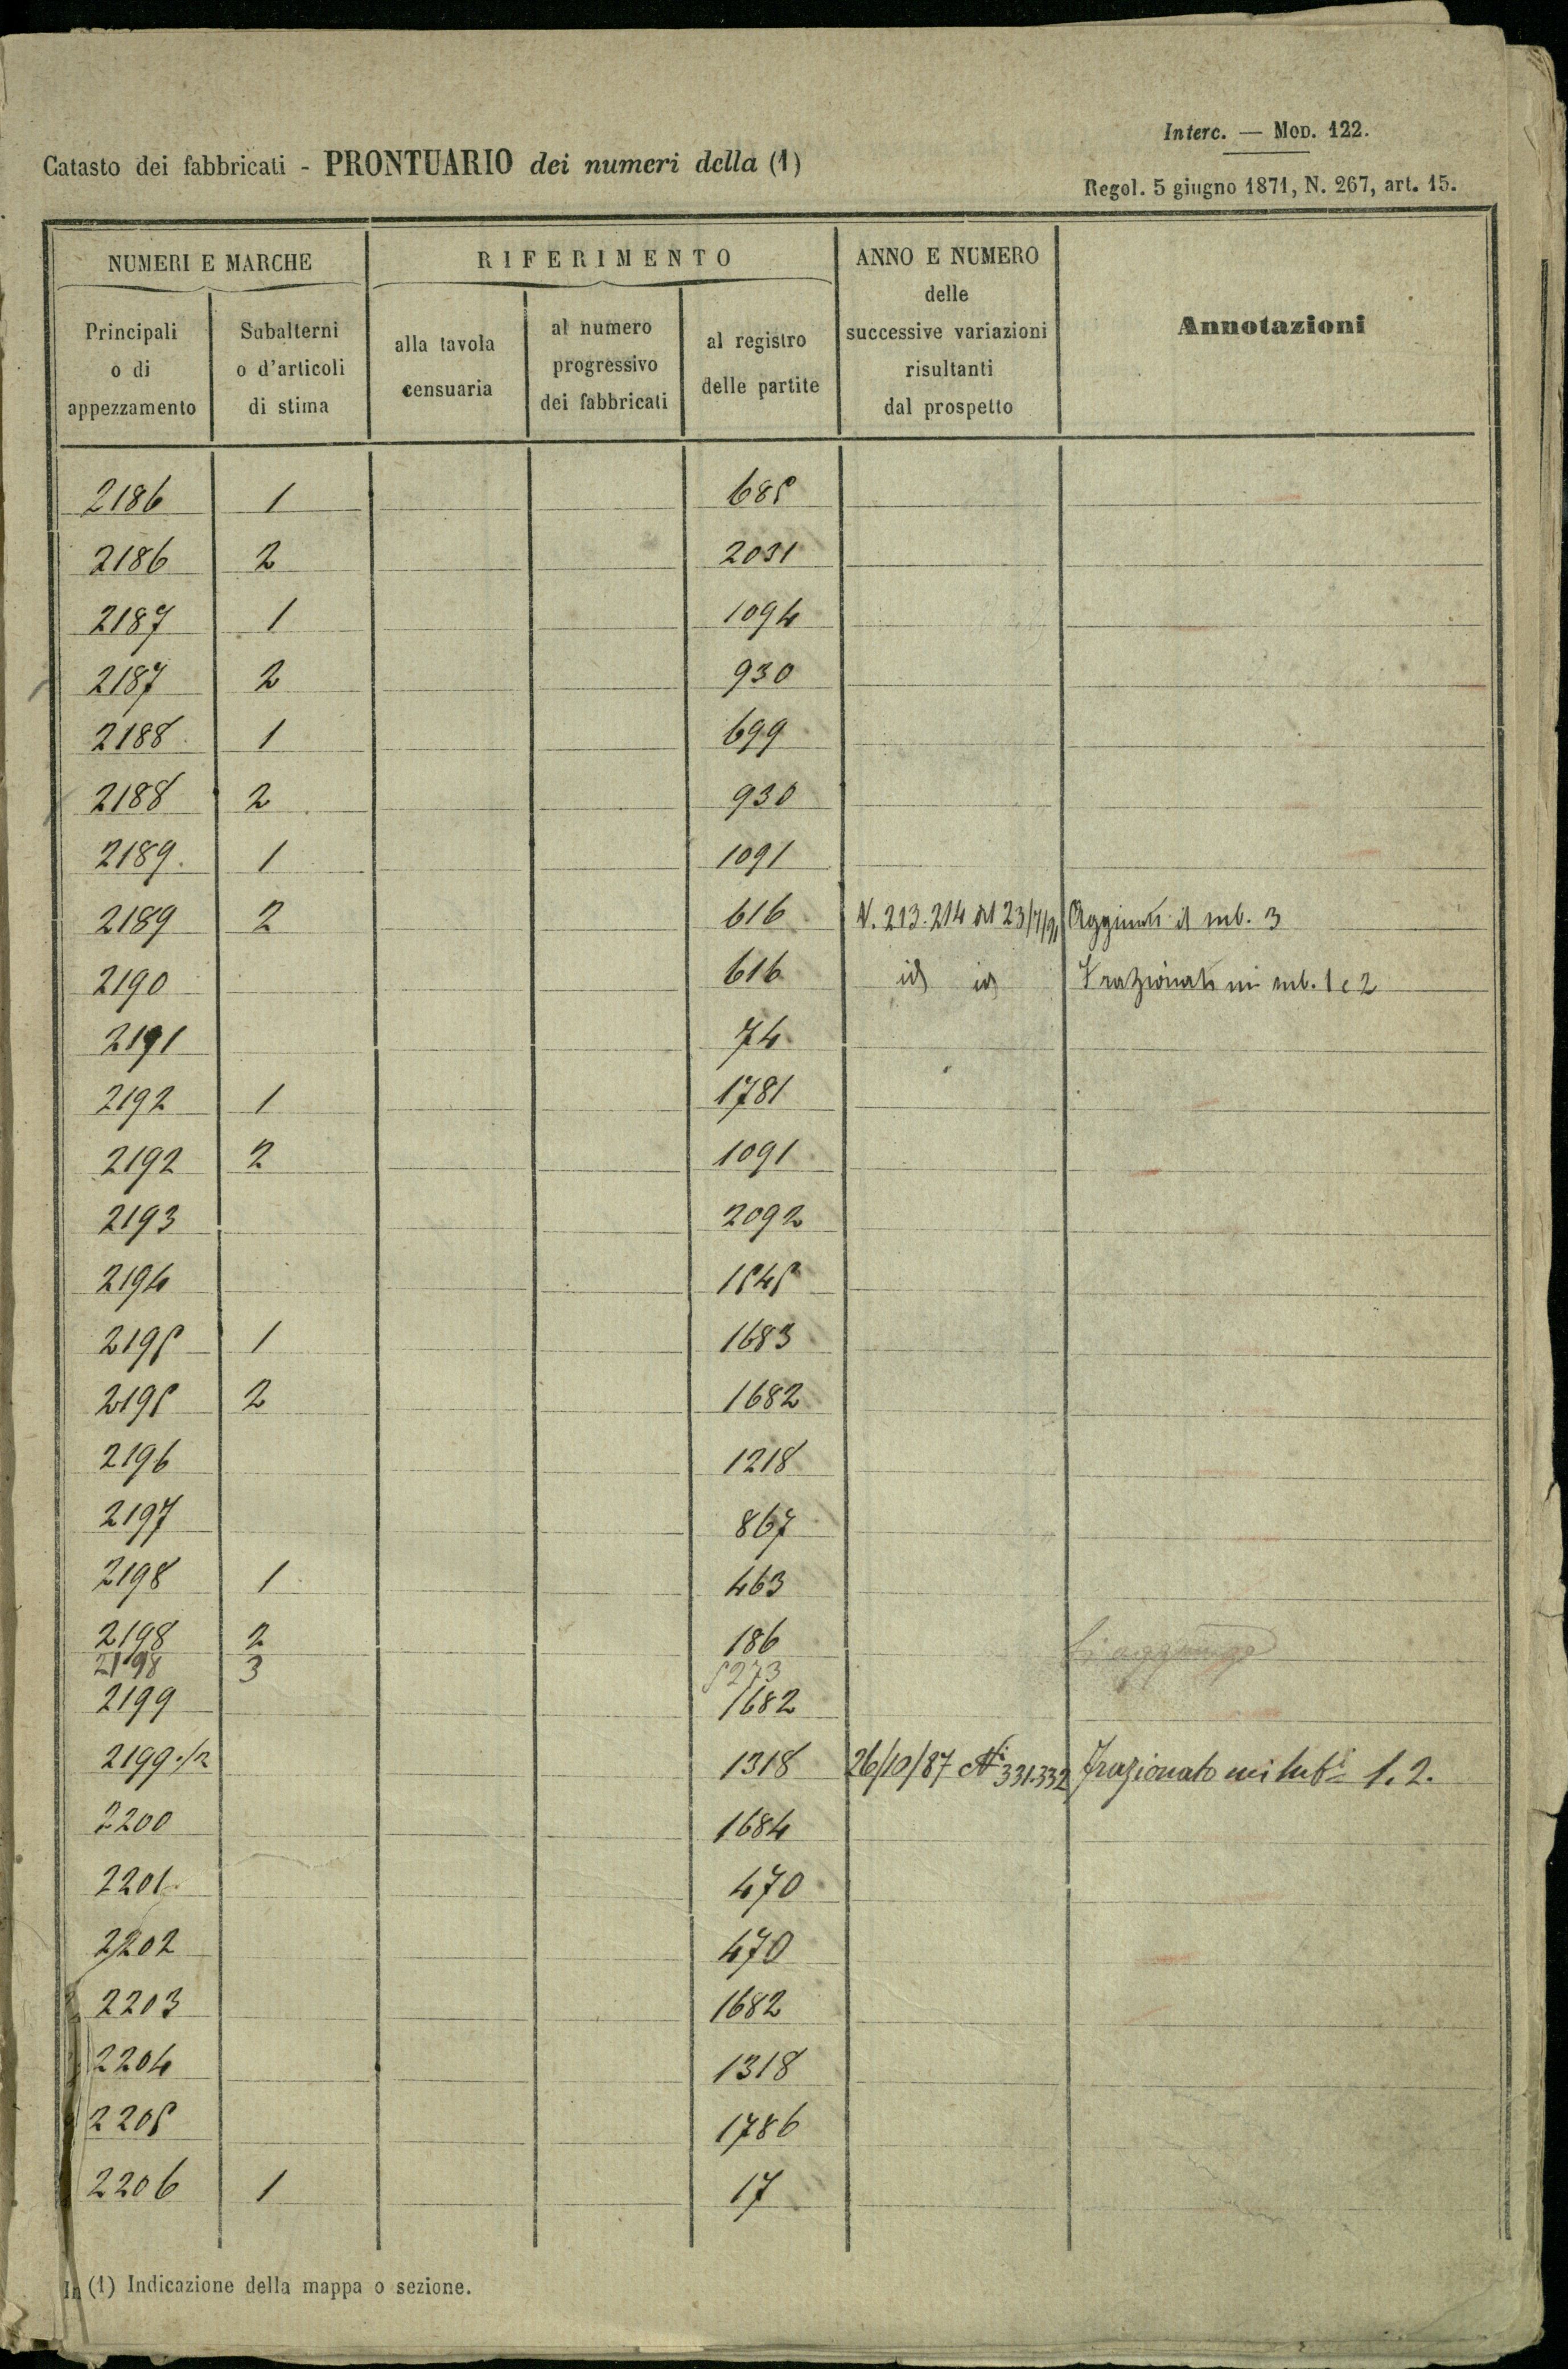 Interc. — Mod. 122.
Catasto dei fabbricati - PRONTUARIO dei numeri della (1)
Regol. 5 giugno 1871, N. 267, art. 15.
NUMERI E MARCHE
Principali o di appezzamento
Subalterni o d'articoli di stima
RIFERIMENTO
alla tavola censuaria
al numero progressivo dei fabbricati
al registro delle partite
ANNO E NUMERO delle successive variazioni risultanti dal prospetto
Annotazioni
2186 1 685
2186 2 2031
2187 1 1094
2187 2 930
2188 1 699
2188 2 930
2189. 1 1091
2189 2 616 N. 213.214 del 23/7/91 Aggiunto il sub. 3
2190 616 id id Frazionato in sub. 1 e 2
2191 74
2192 1 1781
2192 2 1091
2193 2092
2194 1545
2195 1 1683
2195 2 1682
2196 1218
2197 867
2198 1 463
2198 2 186 Si aggiunge
2198 3 5273
2199 1682
2199./2 1318 26/10/87 Ni 331-332 Frazionato nei subi 1. 2.
2200 1684
2201 470
2202 470
2203 1682
2204 1318
2205 1786
2206 1 17
(1) Indicazione della mappa o sezione.